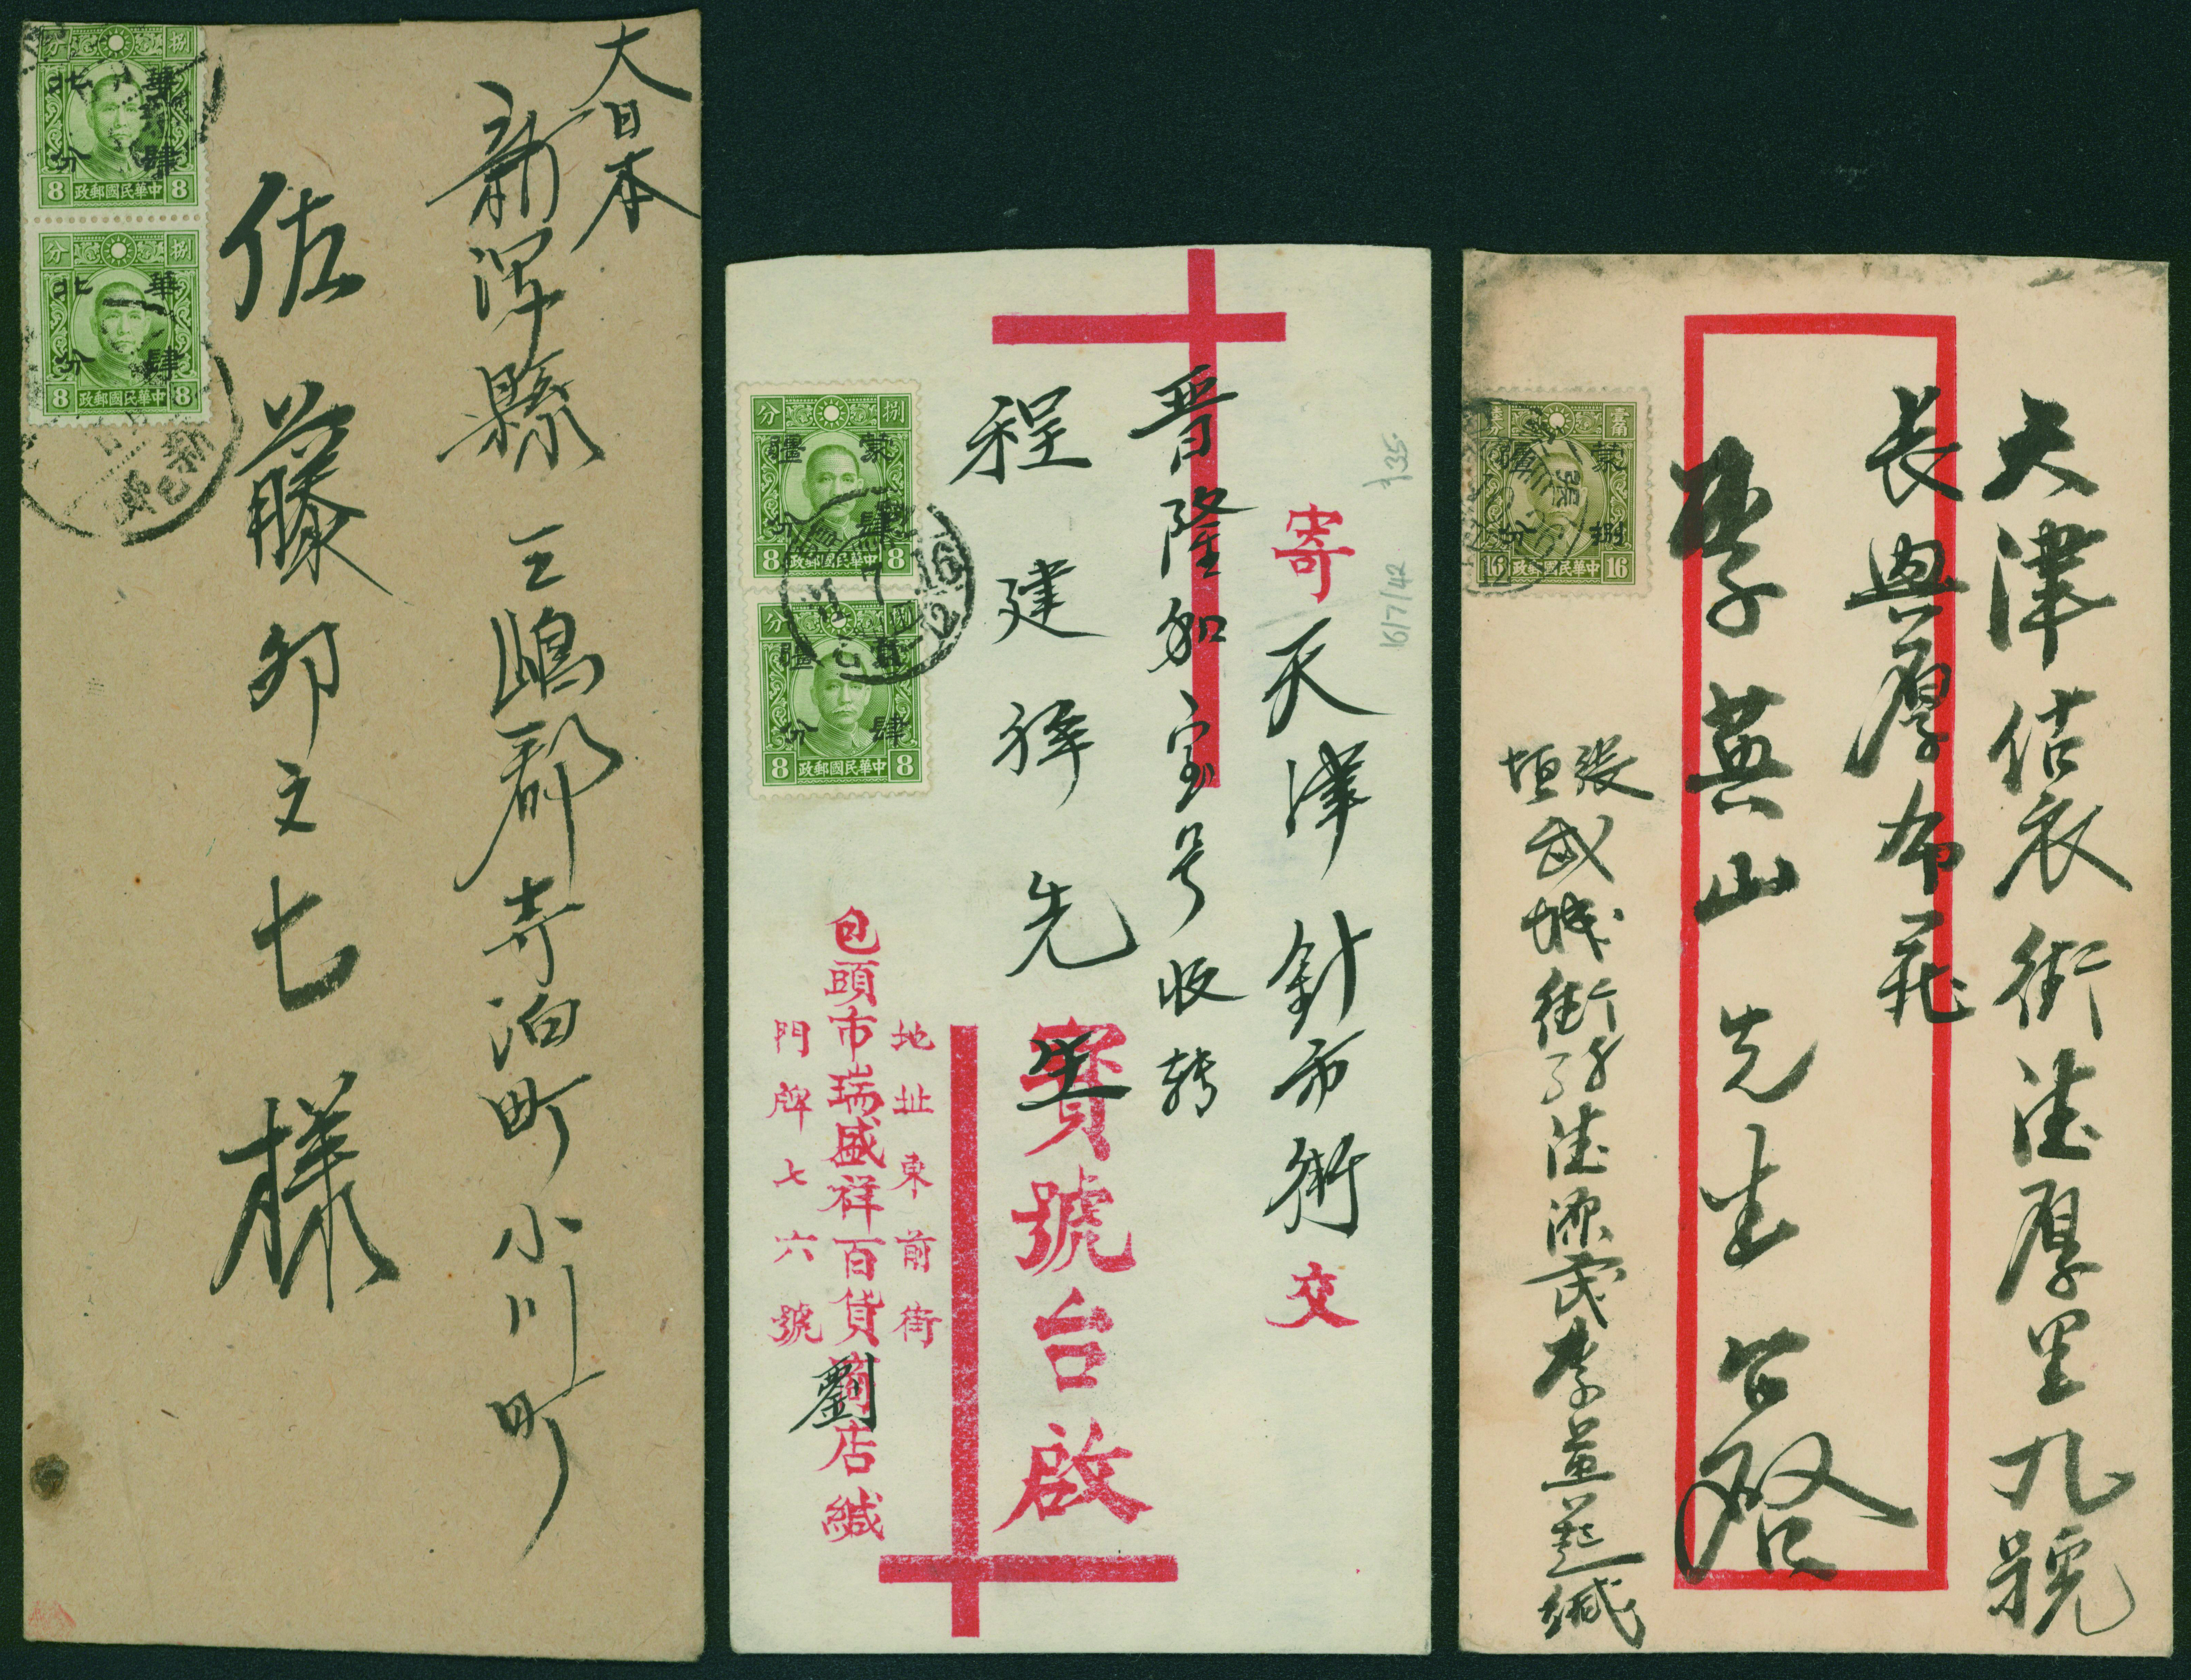 大日本
新潟縣三嶋郡寺泊町小川町
佐藤卯之七様
分 捌
北 華
分 肆
8 政郵國民華中 8
分 捌
北 華
分 肆
8 政郵國民華中 8
寄
天津針市街
交
晋隆和宝号收转
程建祥先生
寶號台啟
地址東前街
包頭市瑞盛祥百貨商店緘
劉
門牌七六號
分 捌
疆 蒙
分 肆
8 政郵國民華中 8
分 捌
疆 蒙
分 肆
8 政郵國民華中 8
7 16
包
135
16/7/42
天津估衣街德厚里九號
長興厚布莊
李英山先生台啓
張垣武城街
德源茂李
緘
壹角
疆 蒙
分 捌
16 政郵國民華中 16
張
12